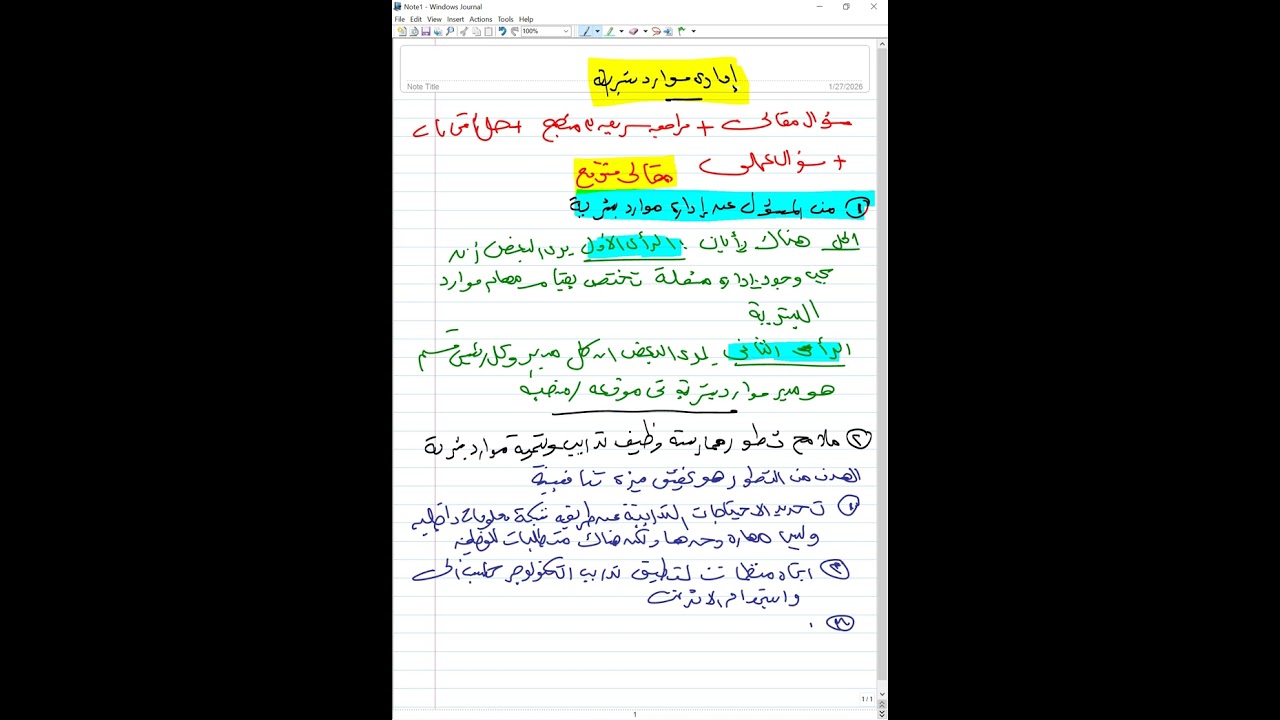 Note1 - Windows Journal
File Edit View Insert Actions Tools Help
100%
إدارة موارد بشرية
Note Title
1/27/2026
سؤال مقالى + مراجعه سريعه منهج + حل
+ سؤال عملى
مقالى متوقع
① من المسؤل عن إدارة موارد بشرية
الحل هناك رأيان : الرأى الأول يرى البعض أنه
يجب وجود إدارة مستقلة تختص بقيام مهام موارد
البشرية
الرأى الثانى يرى البعض ان كل مدير وكل رئيس قسم
هو مدير موارد بشرية فى موقعه / منصبه
② ملامح تطور ممارسة وظيفة تدريب وتنمية موارد بشرية
الهدف من التطور هو تحقيق ميزة تنافسية
① تحديد الاحتياجات التدريبية عن طريق شبكة معلومات داخليه
وليس مهاره وحدها ولكن هناك متطلبات للوظيفه
② اتجاه منظمات لتطبيق تدريب التكنولوجى
واستخدام الانترنت
③ .
1 / 1
1